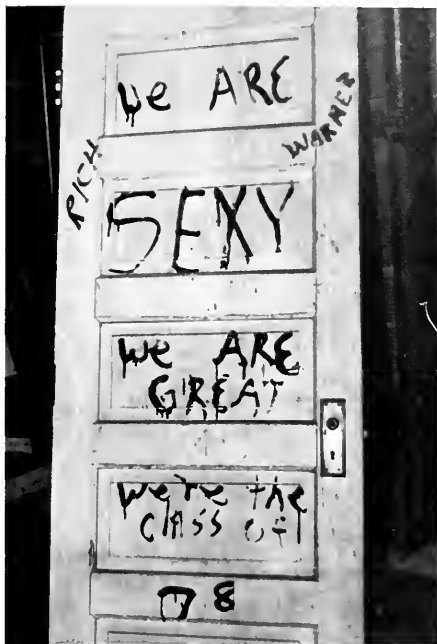 we ARE
RICH
WARNER
SEXY
we ARE
GREAT
we're the
CLASS of
78